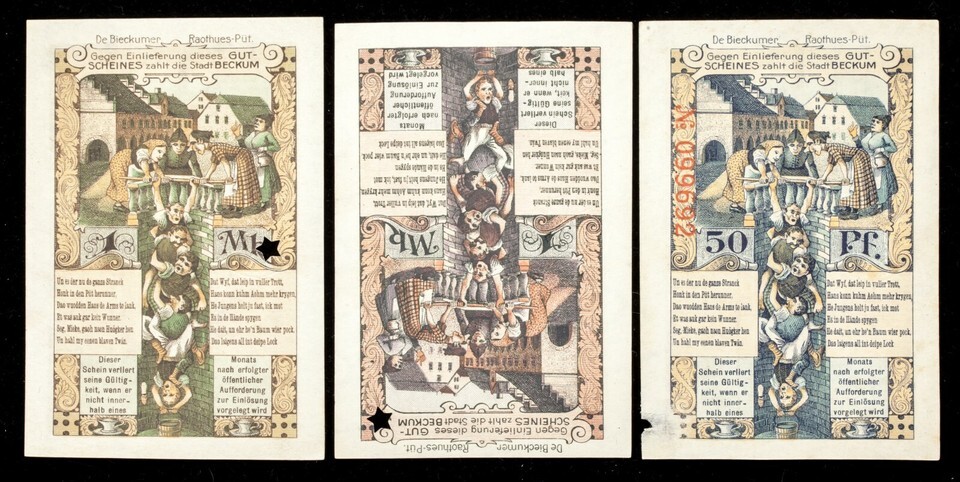 De Bieckumer Raothues-Püt.
Gegen Einlieferung dieses GUT-
SCHEINES zahlt die Stadt BECKUM
1 Mk
Un es der nu de ganze Straock
Honk in den Püt herunner,
Dao wuodden Hans de Arms to lank.
Et was auk gar kein Wunner.
Seg, Mieke, gaoh men Huögter hen
Un hahl my eenen blaoen Twän.
Dat Wyf, dat leip in vuller Trott,
Hans konn kuhm Aohm mehr krygen,
He Jungens holt ju fast, ick mot
Es in de Hände spygen
He dait, un ehr he'n Baum wier pock,
Dao laigens all int deipe Lock
Dieser
Schein verliert
seine Gültig-
keit, wenn er
nicht inner-
halb eines
Monats
nach erfolgter
öffentlicher
Aufforderung
zur Einlösung
vorgelegt wird
De Bieckumer Raothues-Püt.
Gegen Einlieferung dieses GUT-
SCHEINES zahlt die Stadt BECKUM
1 Mk
Un es der nu de ganze Straock
Honk in den Püt herunner,
Dao wuodden Hans de Arms to lank.
Et was auk gar kein Wunner.
Seg, Mieke, gaoh men Huögter hen
Un hahl my eenen blaoen Twän.
Dat Wyf, dat leip in vuller Trott,
Hans konn kuhm Aohm mehr krygen,
He Jungens holt ju fast, ick mot
Es in de Hände spygen
He dait, un ehr he'n Baum wier pock,
Dao laigens all int deipe Lock
Dieser
Schein verliert
seine Gültig-
keit, wenn er
nicht inner-
halb eines
Monats
nach erfolgter
öffentlicher
Aufforderung
zur Einlösung
vorgelegt wird
De Bieckumer Raothues-Püt.
Gegen Einlieferung dieses GUT-
SCHEINES zahlt die Stadt BECKUM
№ 096692
50 Pf.
Un es der nu de ganze Straock
Honk in den Püt herunner,
Dao wuodden Hans de Arms to lank.
Et was auk gar kein Wunner.
Seg, Mieke, gaoh men Huögter hen
Un hahl my eenen blaoen Twän.
Dat Wyf, dat leip in vuller Trott,
Hans konn kuhm Aohm mehr krygen,
He Jungens holt ju fast, ick mot
Es in de Hände spygen
He dait, un ehr he'n Baum wier pock,
Dao laigens all int deipe Lock
Dieser
Schein verliert
seine Gültig-
keit, wenn er
nicht inner-
halb eines
Monats
nach erfolgter
öffentlicher
Aufforderung
zur Einlösung
vorgelegt wird